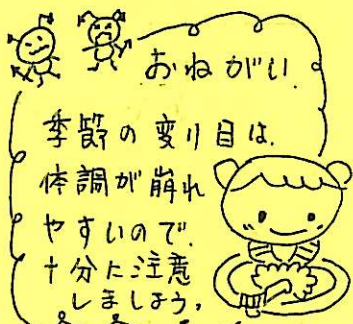 おねがい
季節の変り目は、
体調が崩れ
やすいので、
十分に注意
しましょう。